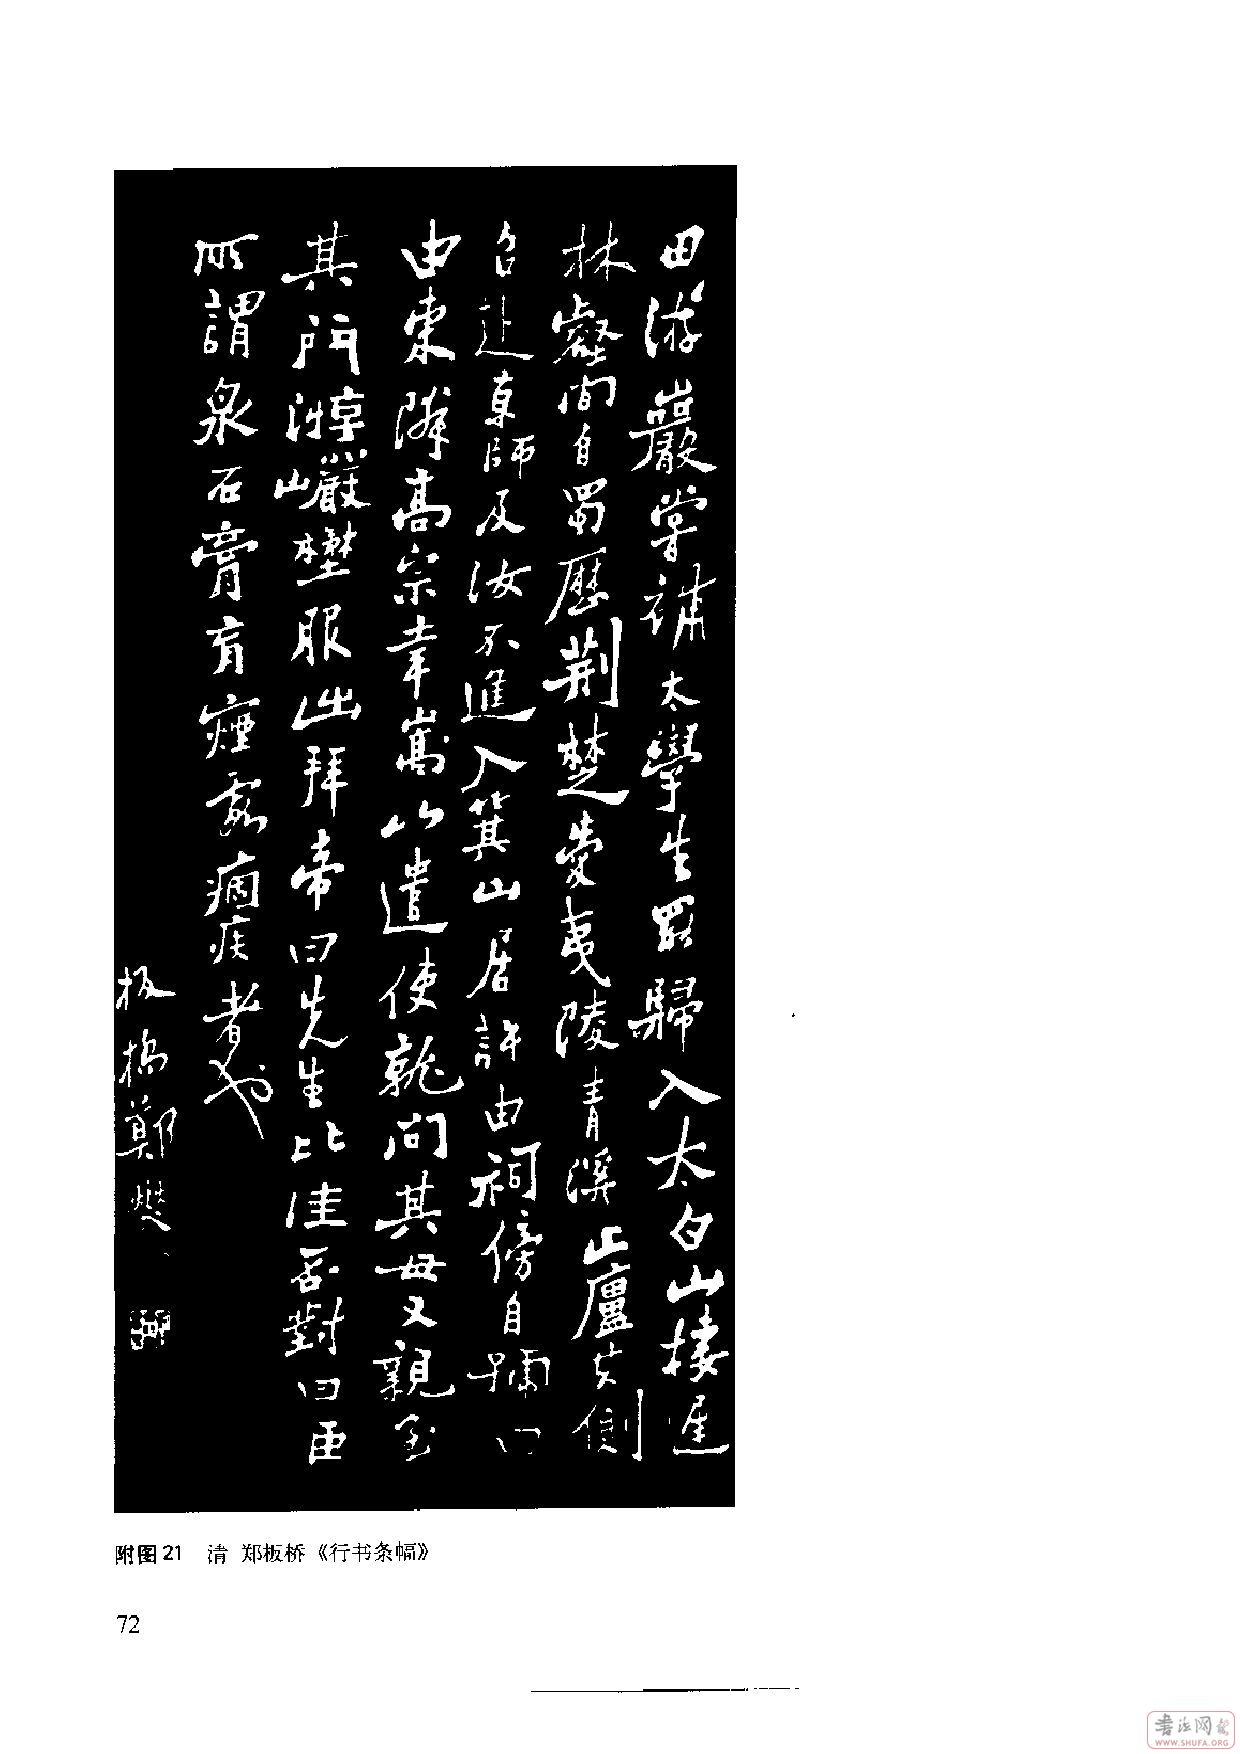 田游巖嘗補太學生罷歸入太白山棲遲
林壑間自蜀歷荆楚愛夷陵青溪止廬其側
召赴京師及汝不進入箕山居許由祠傍自號曰
由東隣高宗幸嵩山遣使就問其母又親至
其門游巖野服出拜帝曰先生比佳否對曰臣
所謂泉石膏肓煙霞痼疾者也
板橋鄭燮
附图21 清 郑板桥《行书条幅》
72
书法网
WWW.SHUFA.ORG